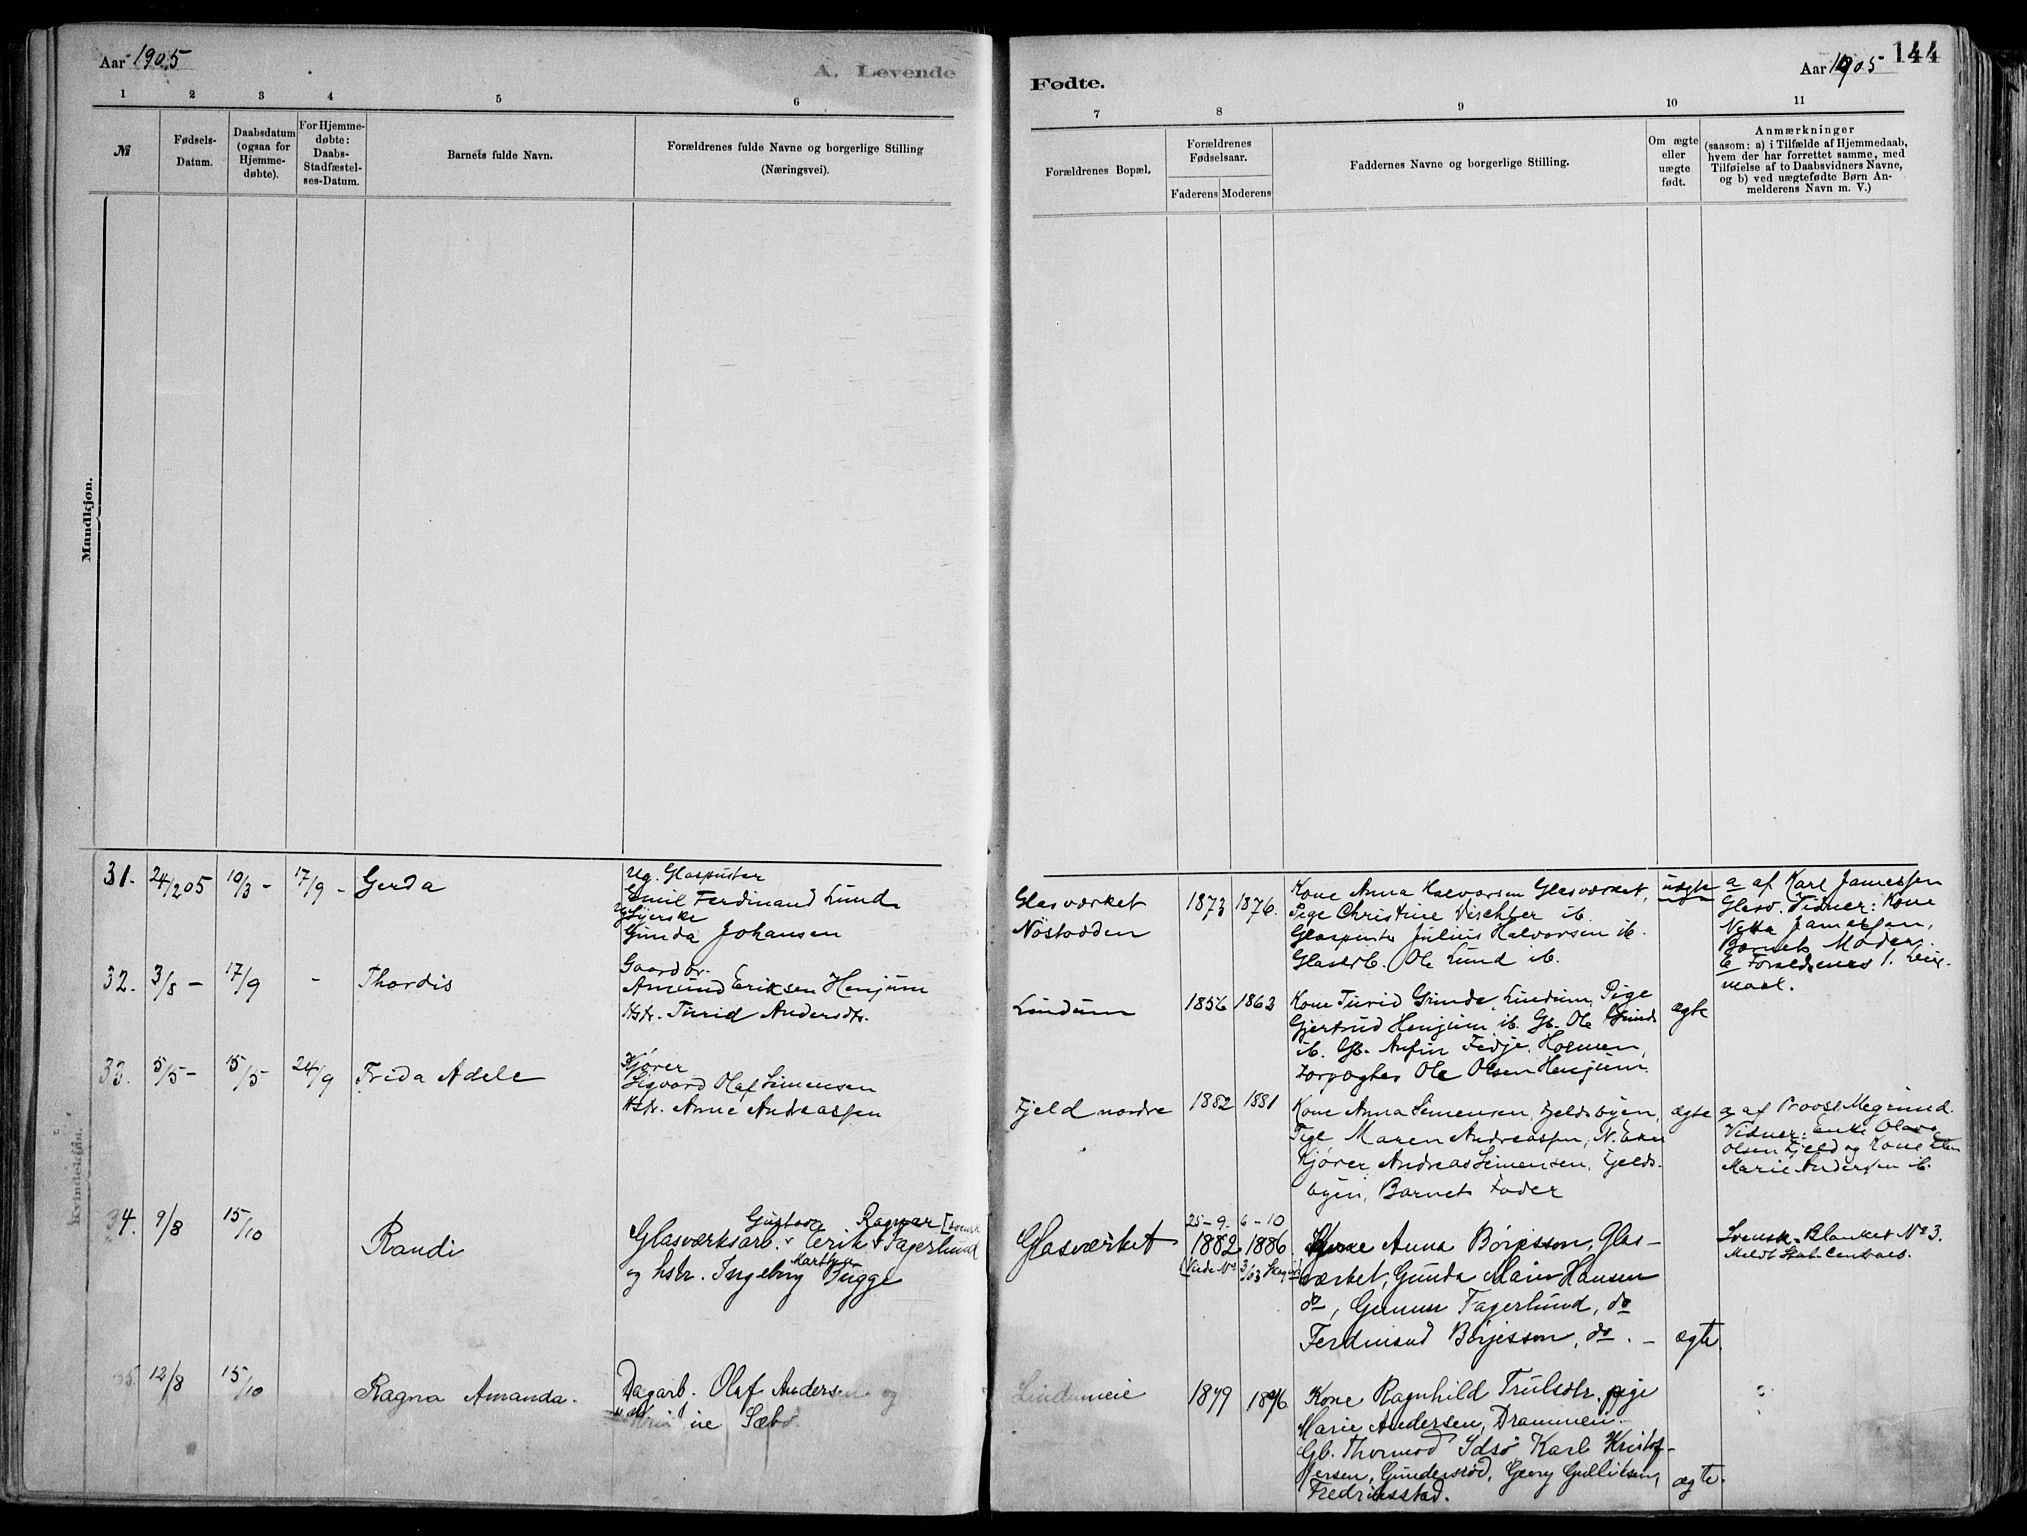 Aar 1905
A. Levende
1 2 3 4 5 6
№
Fødsels-
Datum.
Daabsdatum
(ogsaa for
Hjemme-
døbte).
For Hjemme-
døbte:
Daabs-
Stadfæstel-
ses-Datum.
Barnets fulde Navn.
Forældrenes fulde Navne og borgerlige Stilling
(Næringsvei).
Mandkjøn.
Kvindekjøn.
31. 24/2 05 10/3 - 17/9 - Gerda
Ug. Glaspuster
Emil Ferdinand Lund
Ug Syerske
Gunda Johansen
32. 3/8 - 17/9 - Thordis
Gaardbr.
Amund Eriksen Henjum
Hstr. Turid Andersdtr.
33. 5/5 - 15/5 24/9 Frida Adele
Kjører
Sigvard Olaf Simensen
Hstr. Anne Andreassen
34. 9/8 15/10 Randi
Gustav Ragnar [svensk
Glasværksarb. Erik Fagerlund
Marthine
og hstr. Ingeborg Bugge
35. 12/8 15/10 Ragna Amanda.
Dagarb. Olaf Andersen og
ine Sæbø
144
Fødte.
Aar 1905
7 8 9 10 11
Forældrenes Bopæl.
Forældrenes
Fødselsaar.
Faderens Moderens
Faddernes Navne og borgerlige Stilling.
Om ægte
eller
uægte
født.
Anmærkninger
(saasom: a) i Tilfælde af Hjemmedaab,
hvem der har forrettet samme, med
Tilføielse af to Daabsvidners Navne,
og b) ved uægtefødte Børn An-
melderens Navn m. V.)
Glasværket
Nøstodden
1873 1876.
Kone Anna Halvorsen Glasværket,
Pige Christine Vischler ib.
Glaspuster Julius Halvorsen ib.
Glasarb. Ole Lund ib.
uægte
a af Karl Jamessen
Glasv. Vidner: Kone
Netta Jamessen,
Barnets Moder.
b Forældrenes 1. Leier-
maal.
Lindum
1856 1863
Kone Turid Grinde, Lindum, Pige
Gjertrud Henjum ib. Gb. Ole Grinde
ib. Gb. Anfin Fedje, Holmen,
Forpagter Ole Olsen Henjum.
ægte
Fjeld nordre
1882 1881
Kone Anna Simensen, Fjeldsbyen,
Pige Maren Andreassen, N. Eker
Kjører Andreas Simensen, Fjelds-
byen, Barnets Fader
ægte
a af Provst Megrund.
Vidner: Enke Olava
Olsen Fjeld og Kone Ellen
Marie Andersen ib.
Glasværket
25-9- 6-10
1882 1886
Kone Anna Börjesson, Glas-
værket, Gunda Marie Hansen
do, Gunnar Fagerlund, do
Ferdinand Börjesson, do. -
ægte.
Svensk. Blanket No 3.
Meldt Stat. Centralb.
Lindumeie
1879 1876
Kone Ragnhild Trulsdtr. pige
Marie Andersen, Drammen.
Gb. Thormod Idsø Karl Kristof-
fersen, Gundersrød, Georg Gulliksen,
Fredriksstad.
ægte.